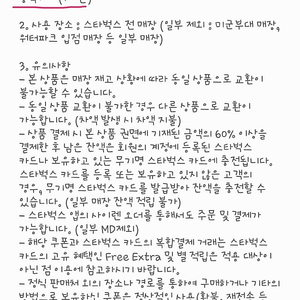 2. 사용 장소 : 스타벅스 전 매장 (일부 제외 : 미군부대 매장,
워터파크 입점 매장 등 일부 매장)
3. 유의사항
- 본 상품은 매장 재고 상황에 따라 동일 상품으로 교환이
불가능할 수 있습니다.
- 동일 상품 교환이 불가한 경우 다른 상품으로 교환이
가능합니다. (차액 발생 시 차액 지불)
- 상품 결제 시 본 상품 권면에 기재된 금액의 60% 이상을
결제한 후 남은 잔액은 회원의 계정에 등록된 스타벅스
카드나 보유하고 있는 무기명 스타벅스 카드에 충전됩니다.
스타벅스 카드를 등록 또는 보유하고 있지 않은 고객의
경우, 무기명 스타벅스 카드를 발급받아 잔액을 충전할 수
있습니다. (일부 매장 잔액 적립 불가)
- 스타벅스 앱의 사이렌 오더를 통해서도 주문 및 결제가
가능합니다. (일부 MD제외)
- 해당 쿠폰과 스타벅스 카드의 복합결제 거래는 스타벅스
카드의 고유 혜택인 Free Extra 및 별 적립은 적용 대상이
아닌 점 이용에 참고하시기 바랍니다.
- 정식 판매처 외의 장소나 경로를 통하여 구매하거나 기타의
방법으로 보유하신 쿠폰은 정상적인 사용(환불, 재전송 등